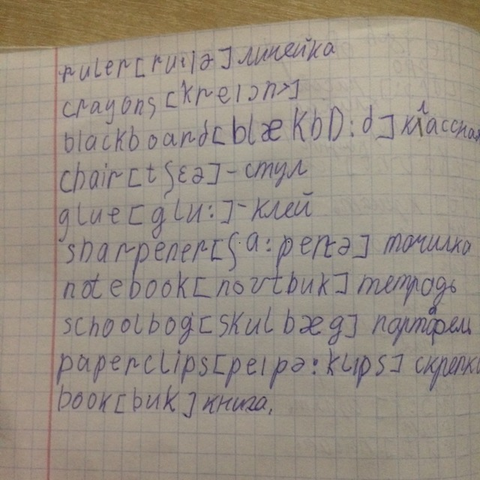 ruler [ru:lə] линейка
crayons [kreɪɔnz]
blackboard [blækbD:d] классная
chair [tʃɛə] - стул
glue [glu:] - клей
sharpener [ʃa:penə] точилка
notebook [novtbuk] тетрадь
schoolbog [skulbæg] портфель
paperclips [peɪpə:klɪps] скрепки
book [buk] книга.